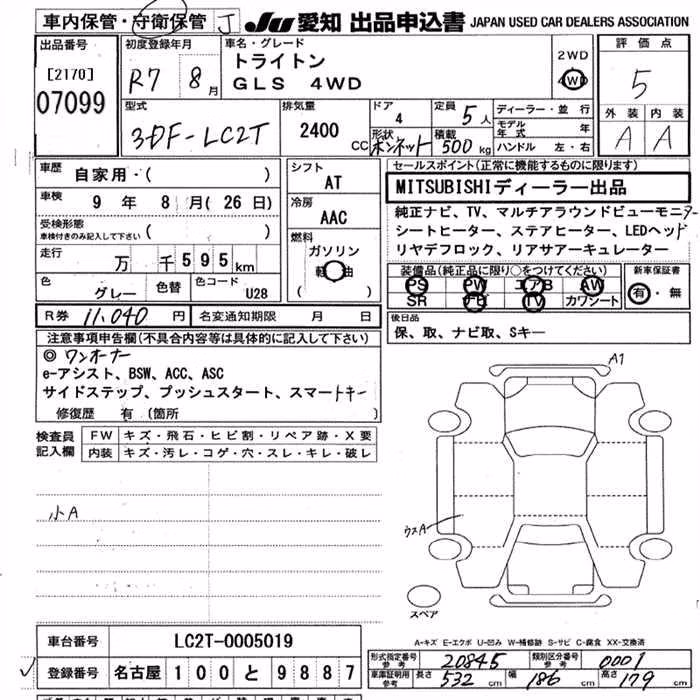 車内保管・守衛保管 J JU 愛知 出品申込書 JAPAN USED CAR DEALERS ASSOCIATION
出品番号 初度登録年月 車名・グレード 評価点
[2170] R7 8月 トライトン 2WD
07099 GLS 4WD 4WD 5
型式 排気量 ドア 定員 ディーラー・並行 外装 内装
3DF-LC2T 2400 CC 4 5人 モデル年式 年 A A
形状 ボンネット 積載 500kg ハンドル 左・右
車歴 自家用・( ) シフト AT セールスポイント(正常に機能するものに限ります)
MITSUBISHIディーラー出品
車検 9年 8月(26日) 冷房 AAC
純正ナビ、TV、マルチアラウンドビューモニター
受検形態 車検付きのみ記入して下さい ( ) 燃料 シートヒーター、ステアヒーター、LEDヘッド
走行 万 千595km ガソリン リヤデフロック、リアサーキュレーター
色 グレー 色替 色コード U28 軽油 ( )
装備品(純正品に限り○をつけてください) 新車保証書
PS PW エアB AW 有・無
SR ナビ TV カワシート
R券 11,040円 名変通知期限 月 日 後日品
注意事項申告欄(不具合内容等は具体的に記入して下さい) 保、取、ナビ取、Sキー
◎ワンオーナー A1
e-アシスト、BSW、ACC、ASC
サイドステップ、プッシュスタート、スマートキー
修復歴 有 (箇所
検査員記入欄 FW キズ・飛石・ヒビ割・リペア跡・X要
内装 キズ・汚レ・コゲ・穴・スレ・キレ・破レ
小A
ウスA
スペア
車台番号 LC2T-0005019 A-キズ E-エクボ U-凹み W-補修跡 S-サビ C-腐食 XX-交換済
登録番号 名古屋 100 と 9887 形式指定番号 参考 20845 類別区分番号 参考 0001
車庫証明用 参考 長さ 532cm 幅 186cm 高さ 179cm